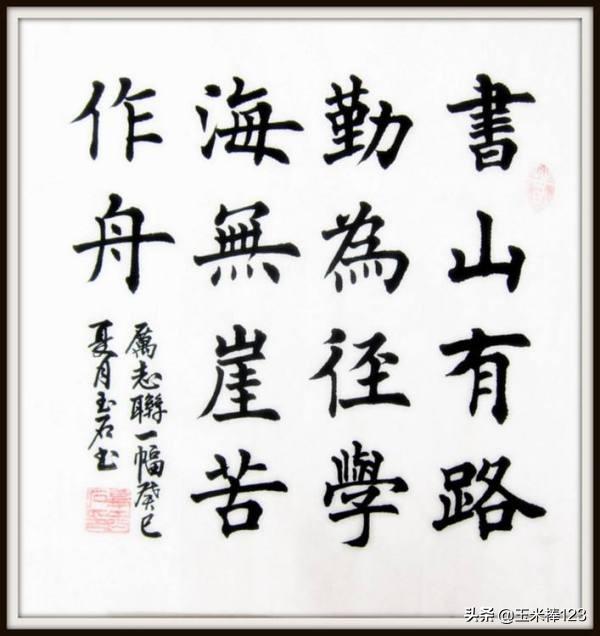 書山有路
勤為径學
海無崖苦
作舟
厲志聯一幅癸巳
夏月玉石书
头条 @玉米棒123